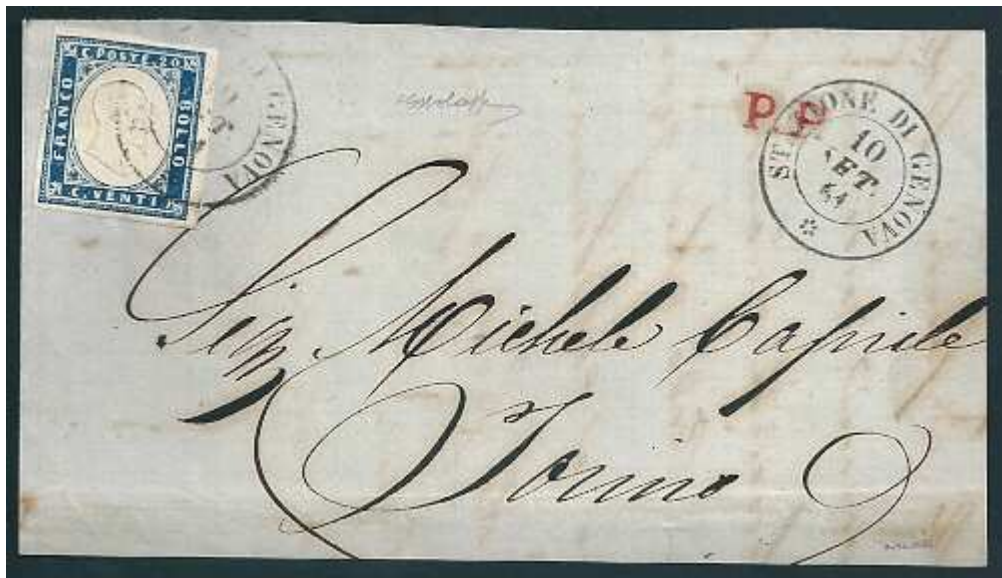 C. POSTE. 20
FRANCO
BOLLO
C. VENTI
GENOVA
P.P.
STAZIONE DI GENOVA
10
SET.
Sig. Michele Caprile
Torino